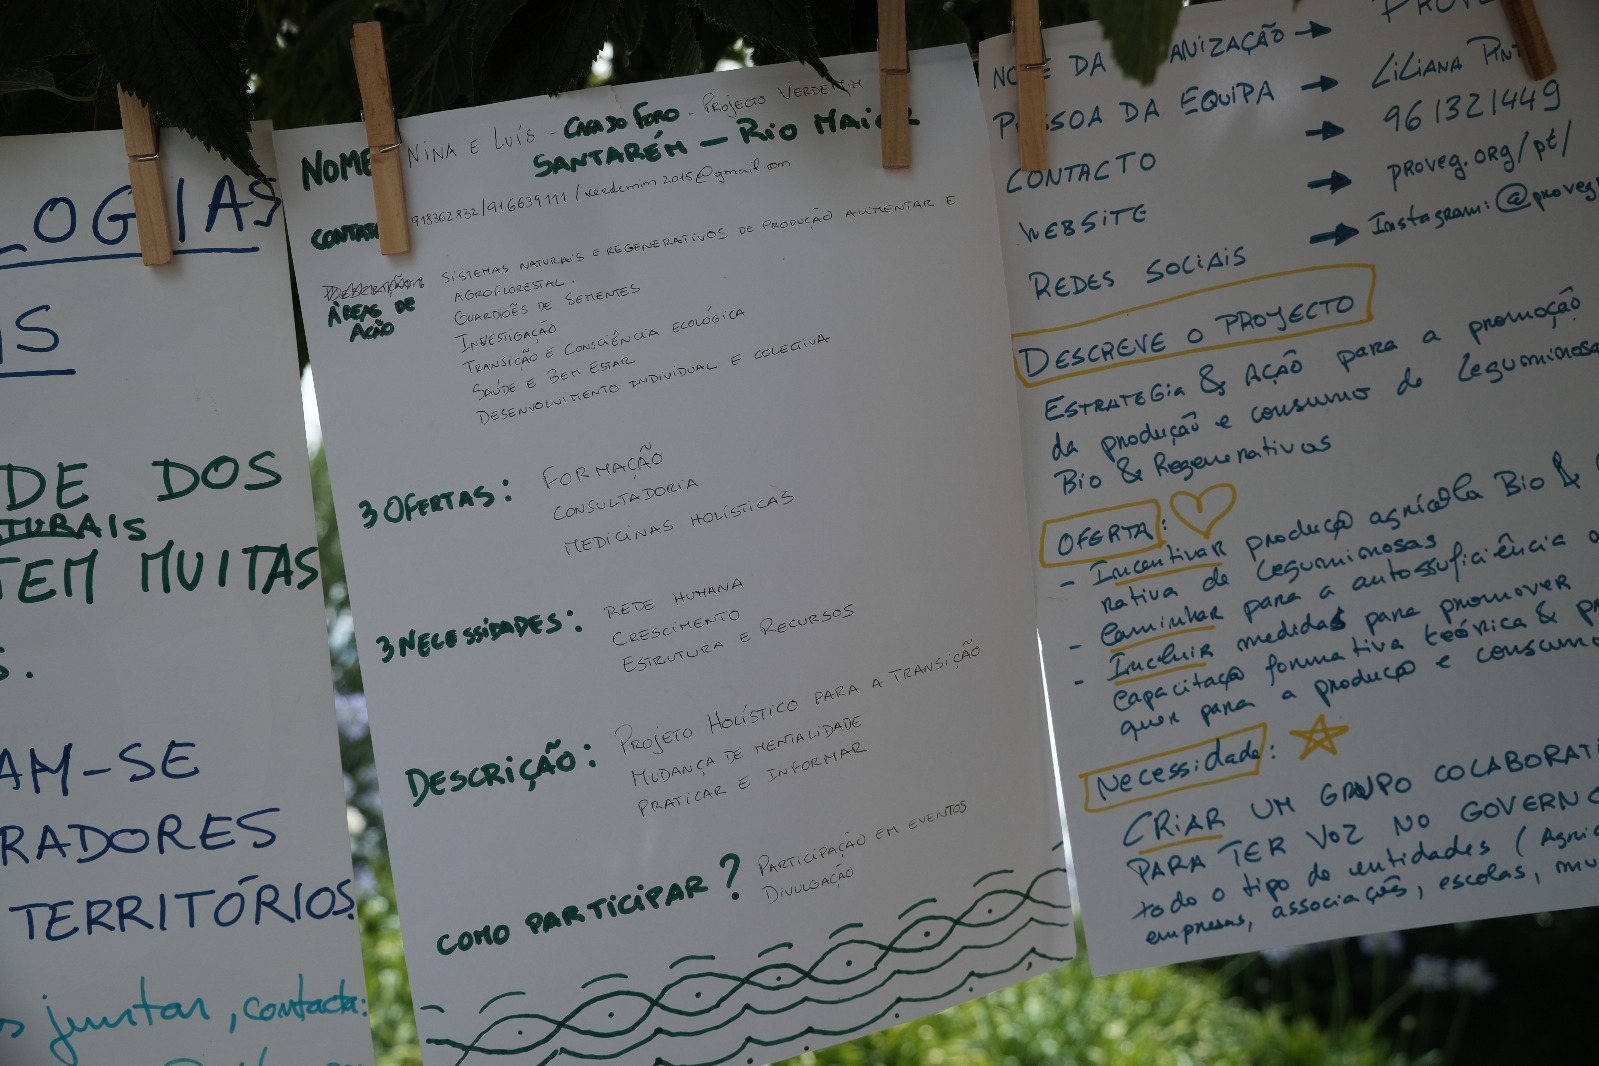 LOGIAS
IS
DE DOS
TURAIS
TEM MUITAS
S.
AM-SE
RADORES
TERRITÓRIOS
juntar, contacta:
NOME NINA E LUÍS - CASA DO FORO - PROJECTO VERDEMIM
SANTARÉM - RIO MAIOR
CONTATO 918362832/916639111 / verdemim2015@gmail.com
ÁREAS DE AÇÃO
SISTEMAS NATURAIS E REGENERATIVOS DE PRODUÇÃO ALIMENTAR E
AGROFLORESTAL.
GUARDIÕES DE SEMENTES
INVESTIGAÇÃO
TRANSIÇÃO E CONSCIÊNCIA ECOLÓGICA
SAÚDE E BEM ESTAR
DESENVOLVIMENTO INDIVIDUAL E COLECTIVA
3 OFERTAS: FORMAÇÃO
CONSULTADORIA
MEDICINAS HOLÍSTICAS
3 NECESSIDADES: REDE HUMANA
CRESCIMENTO
ESTRUTURA E RECURSOS
DESCRIÇÃO: PROJETO HOLÍSTICO PARA A TRANSIÇÃO
MUDANÇA DE MENTALIDADE
PRATICAR E INFORMAR
COMO PARTICIPAR? PARTICIPAÇÃO EM EVENTOS
DIVULGAÇÃO
NOME DA ORGANIZAÇÃO → PROVE
PESSOA DA EQUIPA → LILIANA PINT
CONTACTO → 961321449
WEBSITE → proveg.org/pt/
REDES SOCIAIS → Instagram: @proveg
DESCREVE O PROJECTO
ESTRATEGIA & AÇÃO para a promoção
da produção e consumo de leguminosas
Bio & Regenerativos
OFERTA:
- Incentivar produção agrícola Bio &
rativa de leguminosas
- Caminhar para a autossuficiência
- Incluir medidas para promover
capacitação formativa teórica & p
quer para a produção e consumo
Necessidade:
CRIAR UM GRUPO COLABORATI
PARA TER VOZ NO GOVERNO
todo o tipo de entidades (Agric
empresas, associações, escolas, mu